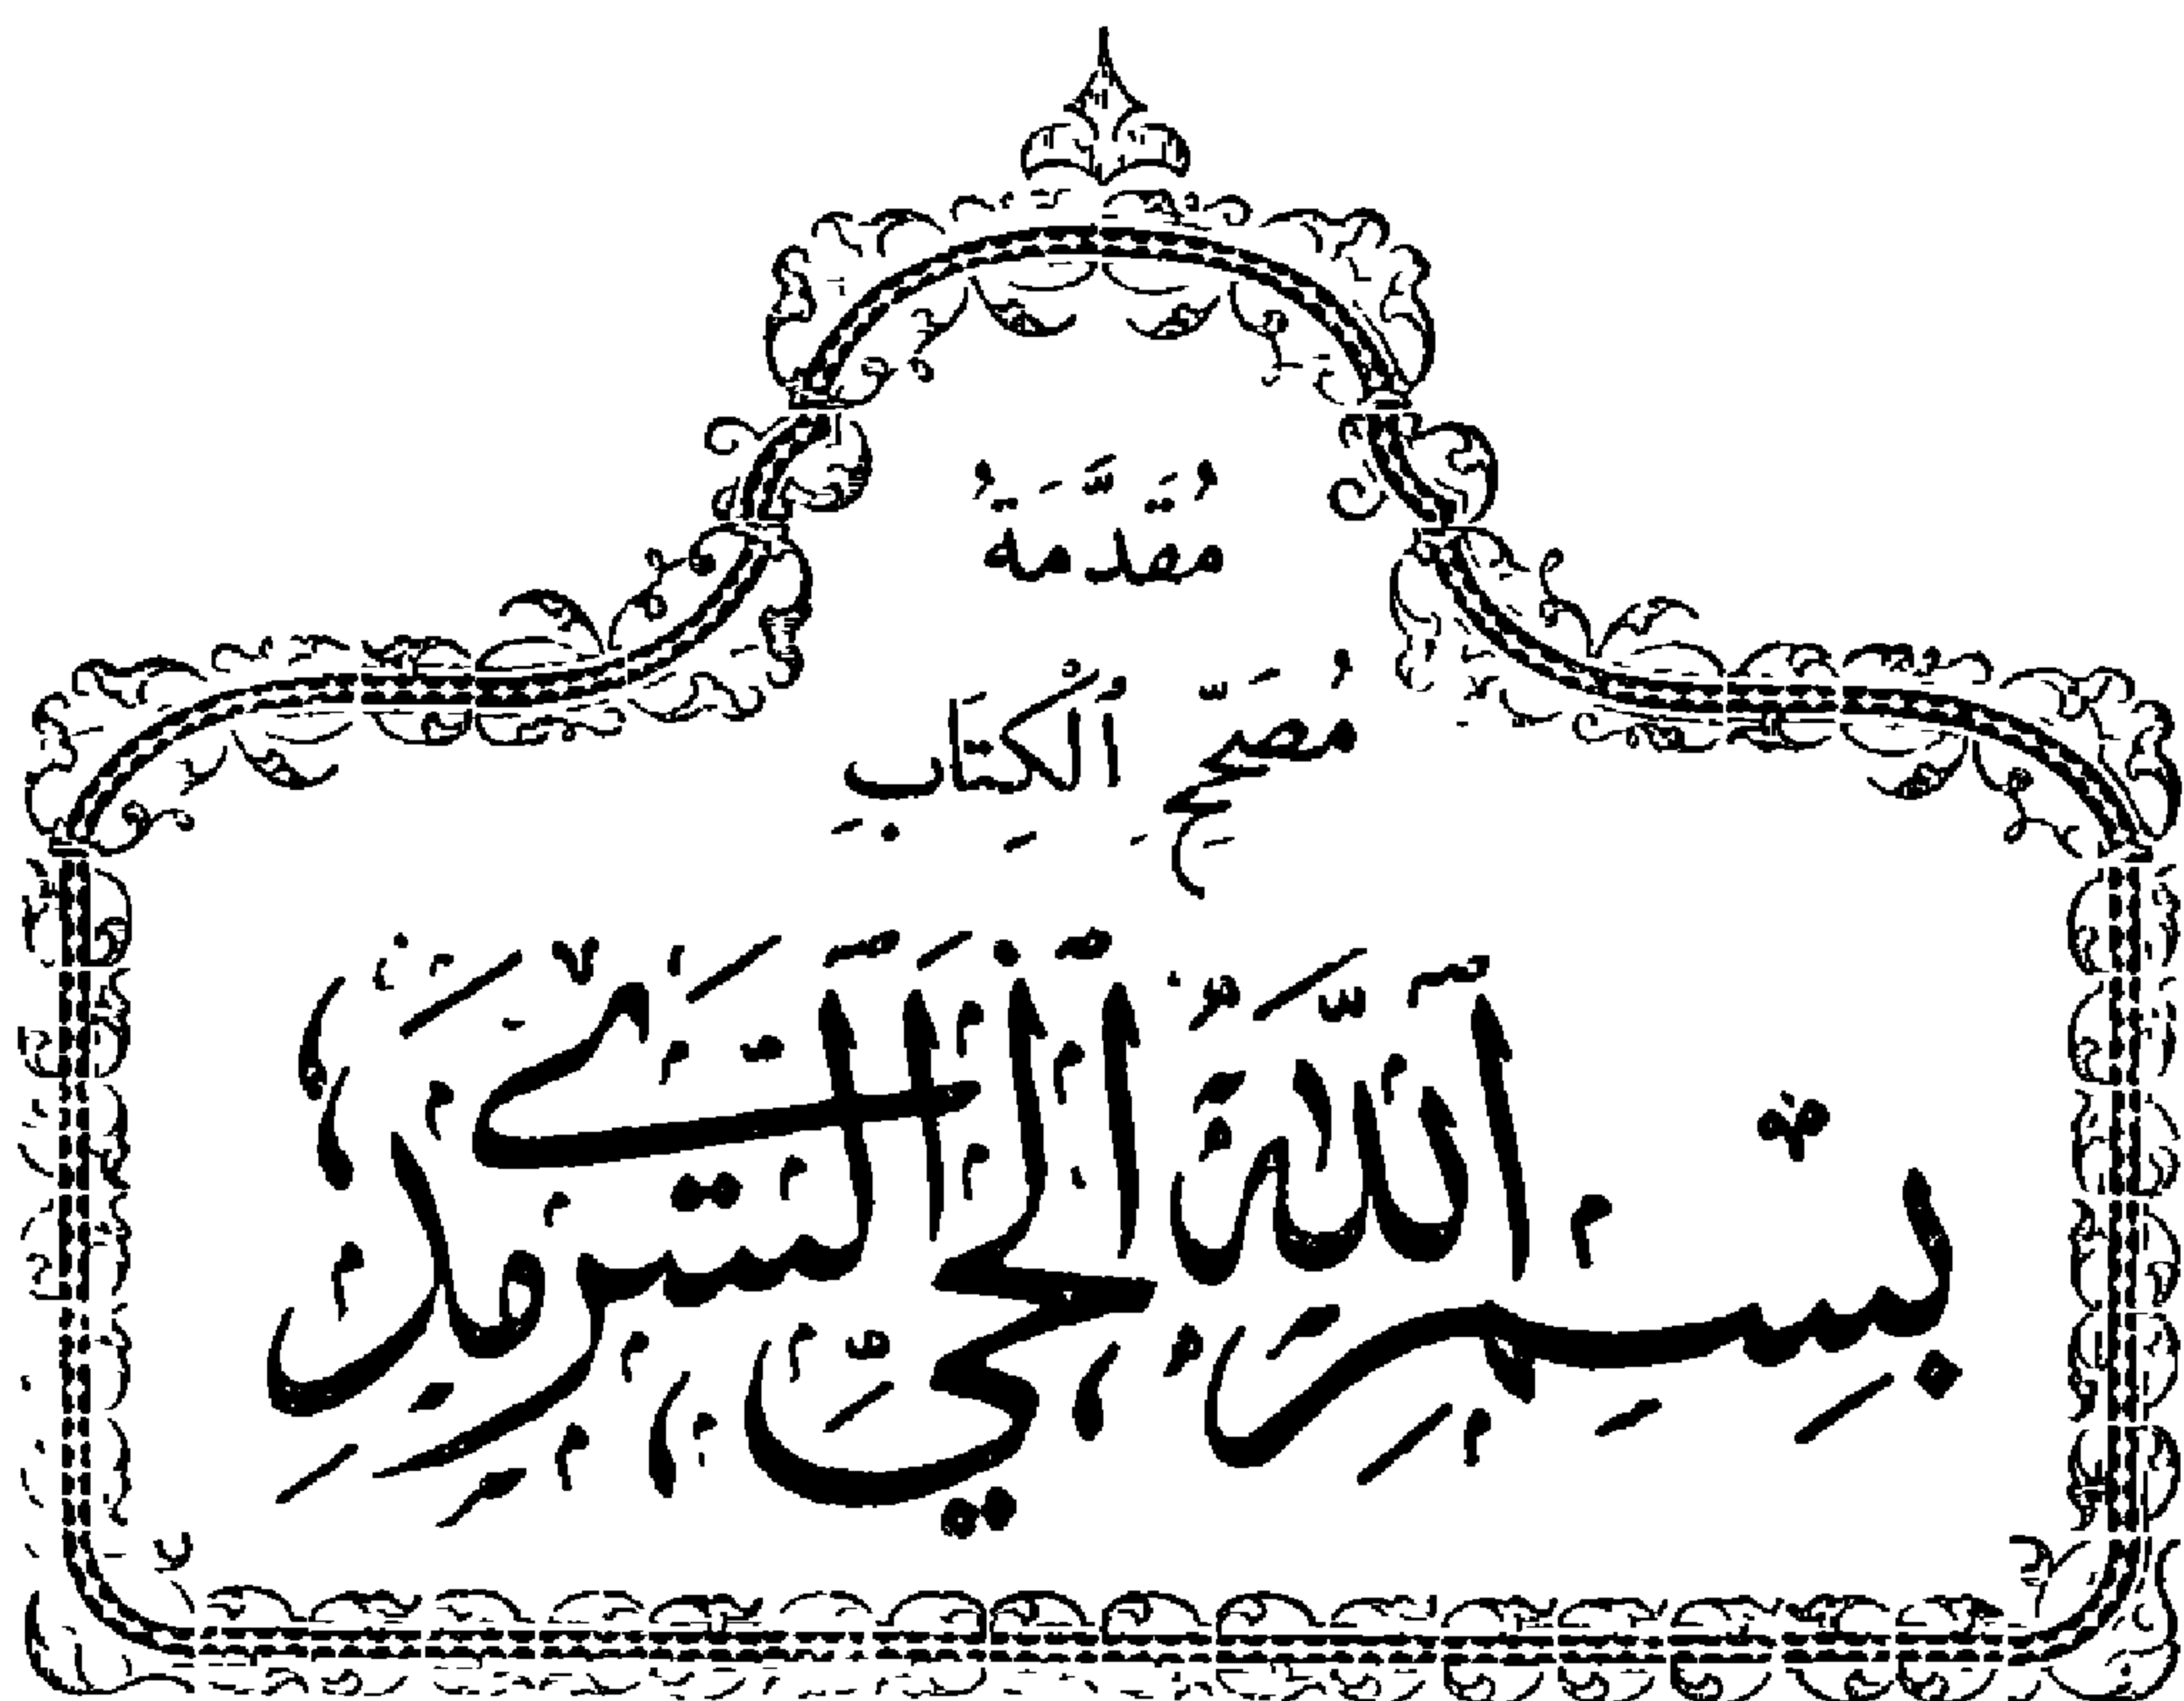 مُقَدَّمَةُ
مُصَحِّحِ ٱلْكِتَابِ
بِسْمِ اللّٰهِ الْحَيِّ السَّرْمَدِيِّ